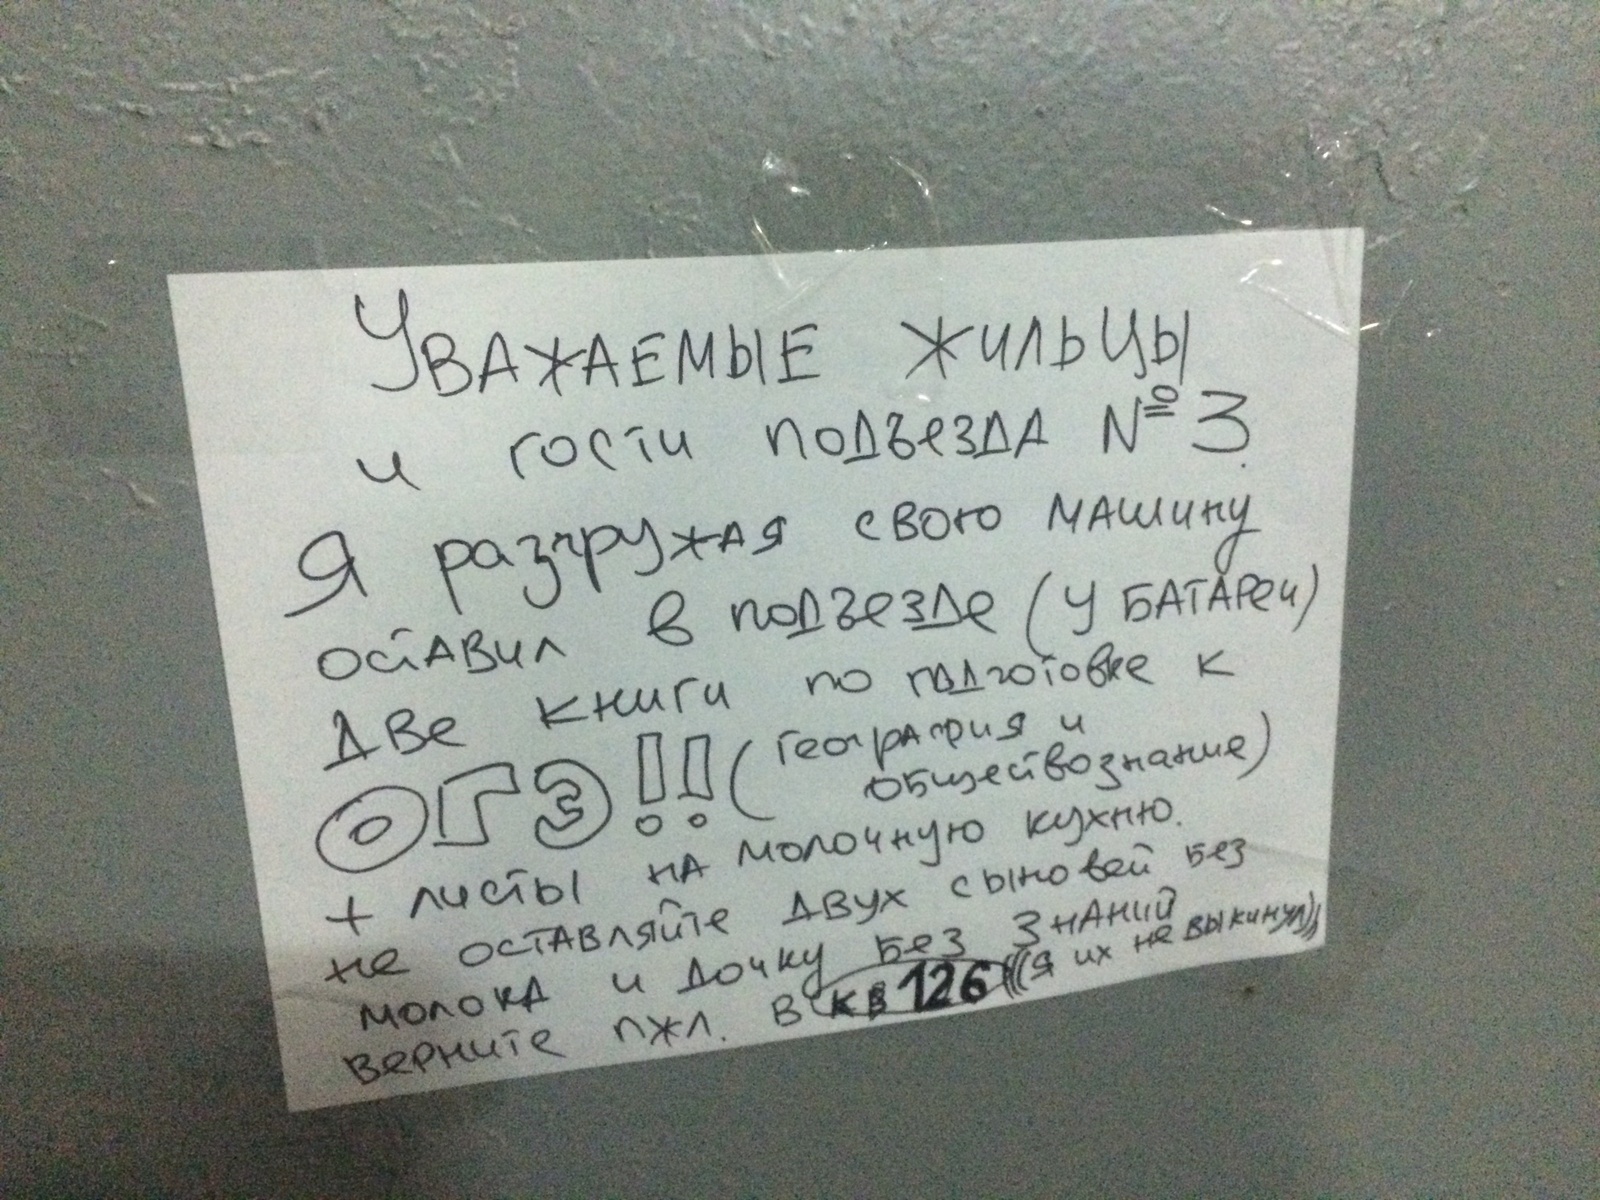 Уважаемые жильцы
и гости подъезда №3.
Я разгружая свою машину
оставил в подъезде (у батареи)
две книги по подготовке к
ОГЭ!! (география и
обществознание)
+ листы на молочную кухню.
не оставляйте двух сыновей без
молока и дочку без знаний
верните пжл. в кв 126 (((я их не выкинул)))